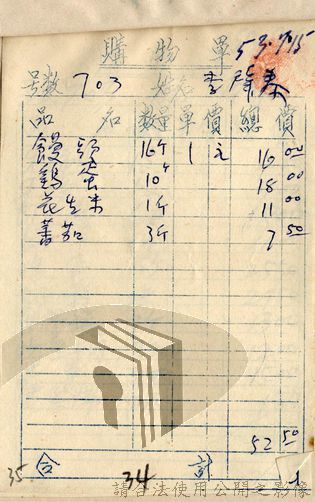 購物單 53.7.15
号数 703 姓名 李
品名 數量 單價 總價
饅頭 16个 1元 16 00
鷄蛋 10个 18 00
花生米 1斤 11 00
蕃茄 3斤 7 50
52 50
合計
35. 34 1
請合法使用公開之影像